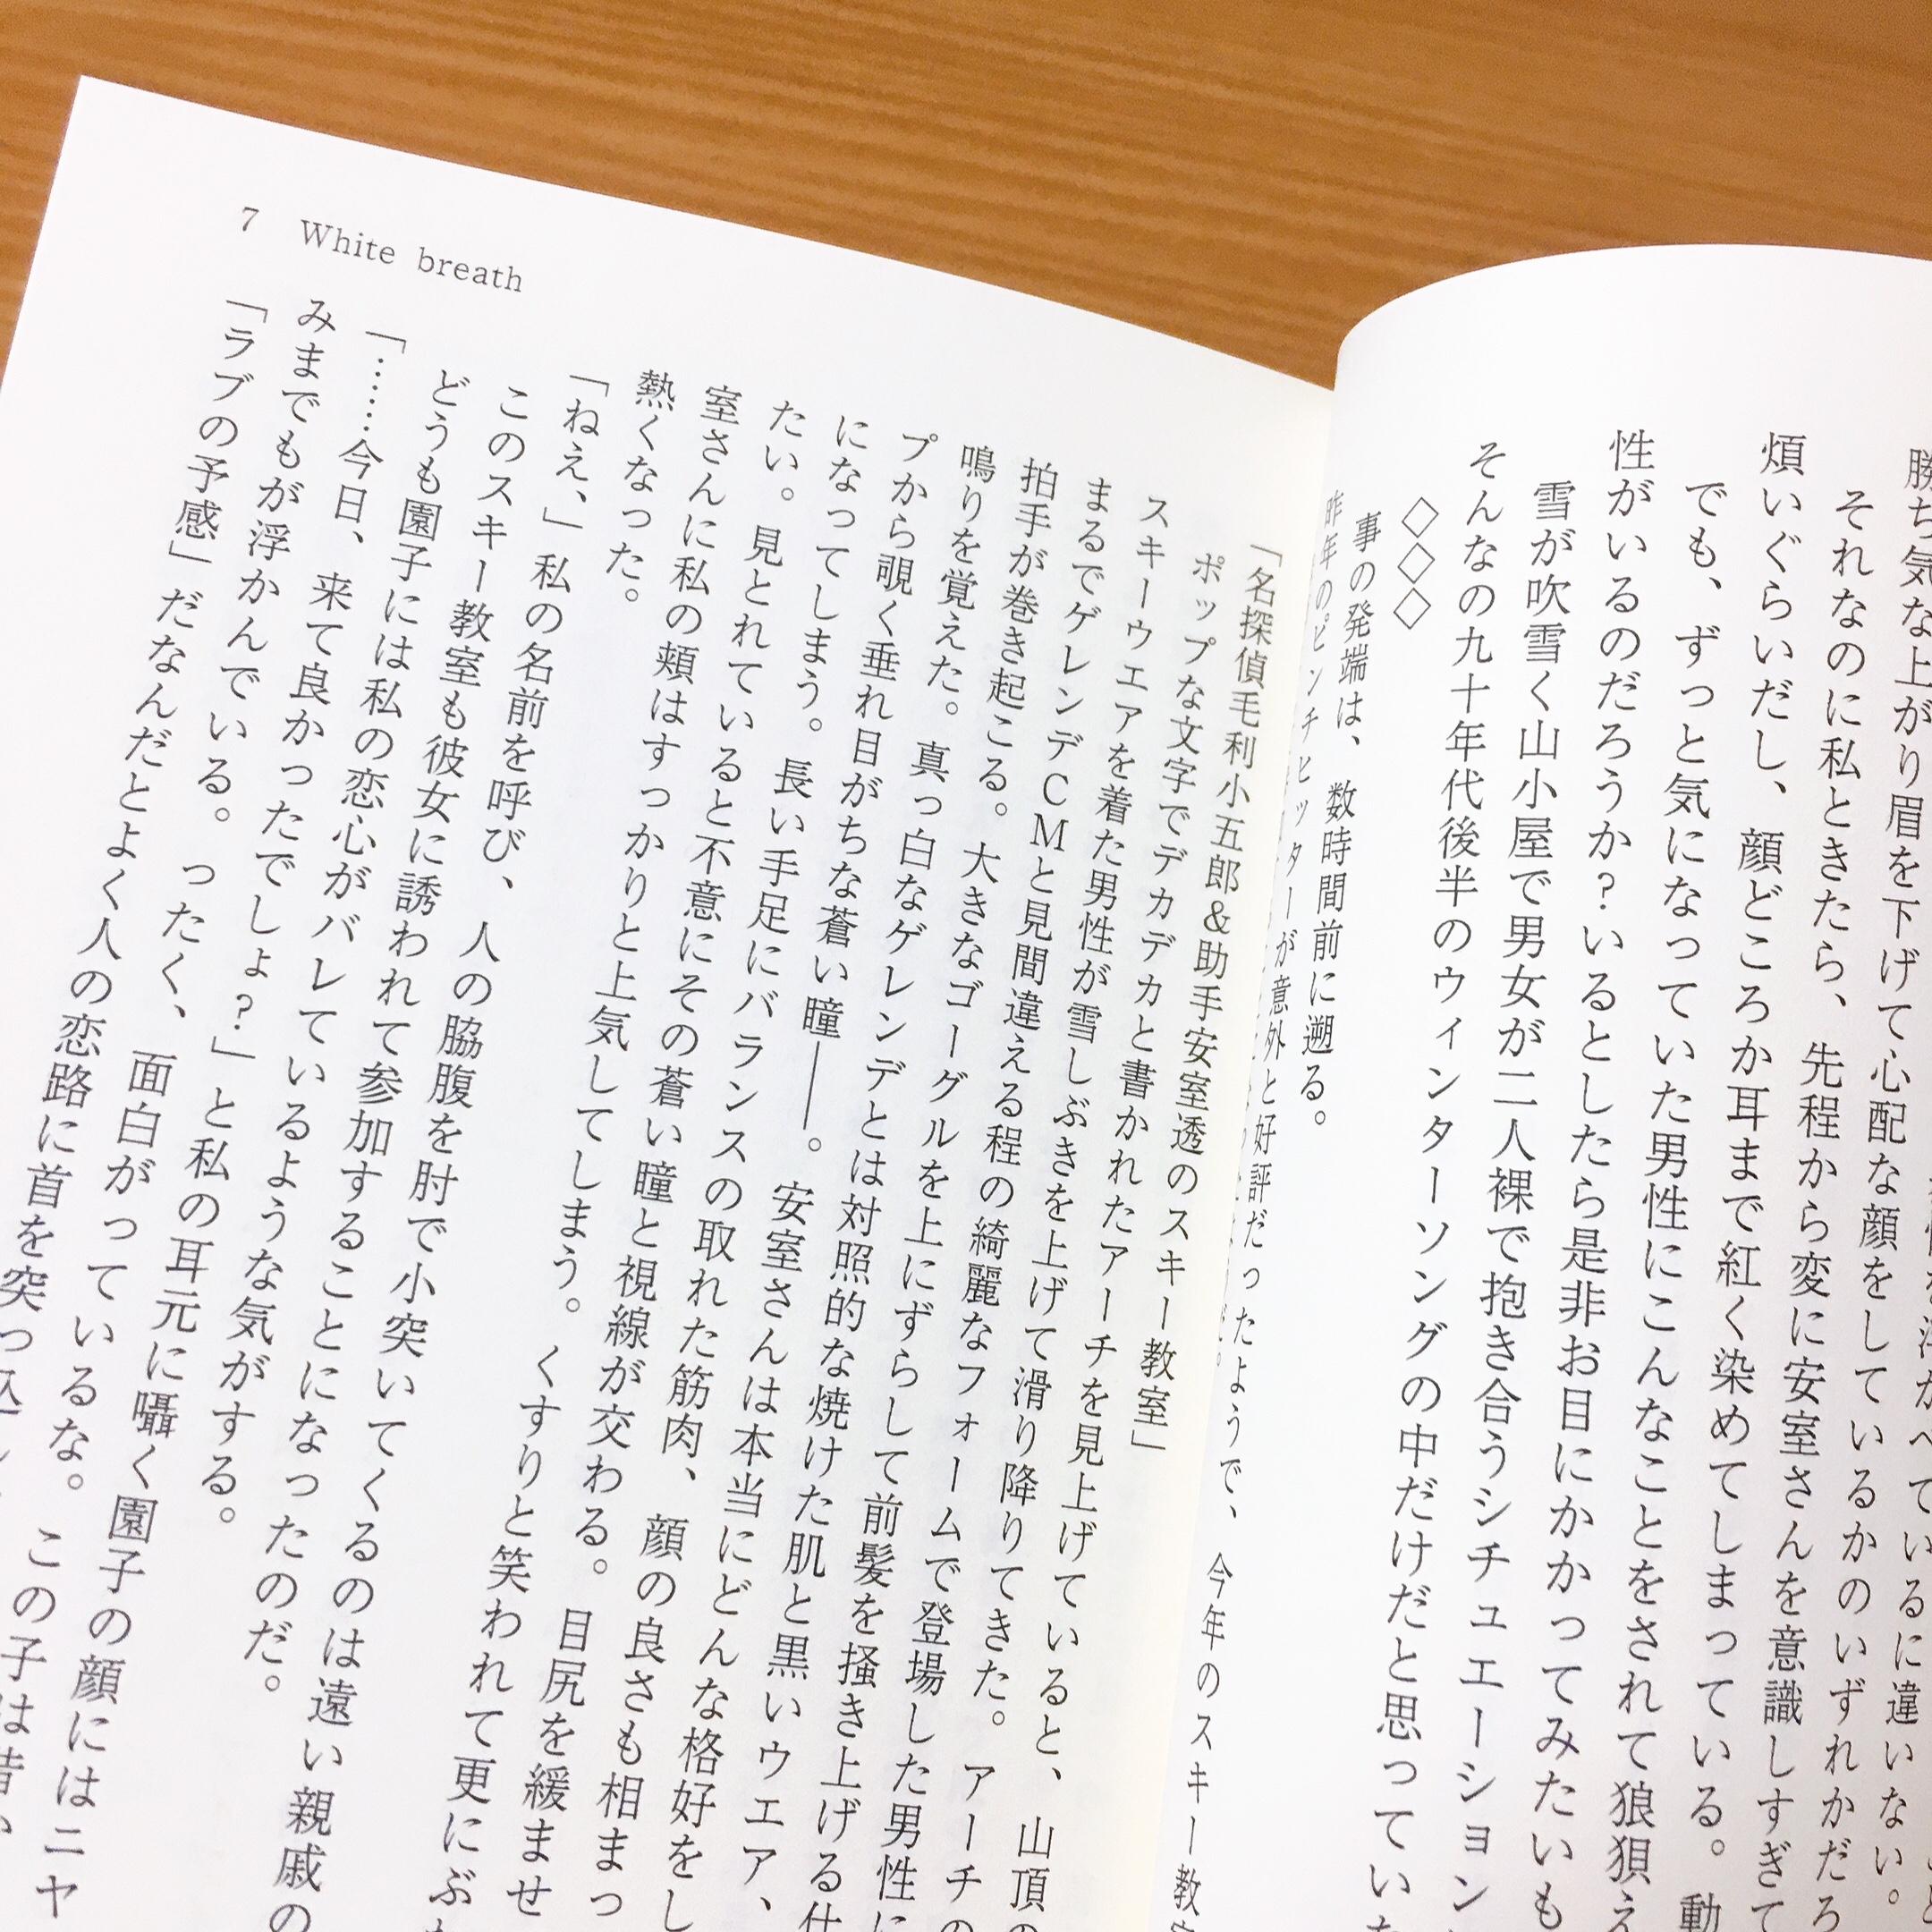 勝ち気な上がり眉を下げて心配な顔をしているかのいずれかだろ
それなのに私ときたら、先程から変に安室さんを意識しすぎて
煩いぐらいだし、顔どころか耳まで紅く染めてしまっている。動
でも、ずっと気になっていた男性にこんなことをされて狼狽え
性がいるのだろうか？いるとしたら是非お目にかかってみたいも
雪が吹雪く山小屋で男女が二人裸で抱き合うシチュエーション
そんなの九十年代後半のウィンターソングの中だけだと思ってい
◇◇◇
事の発端は、数時間前に遡る。
昨年のピンチヒッターが意外と好評だったようで、今年のスキー教
「名探偵毛利小五郎＆助手安室透のスキー教室」
ポップな文字でデカデカと書かれたアーチを見上げていると、山頂の
スキーウエアを着た男性が雪しぶきを上げて滑り降りてきた。アーチの
まるでゲレンデＣＭと見間違える程の綺麗なフォームで登場した男性に
拍手が巻き起こる。大きなゴーグルを上にずらして前髪を掻き上げる仕
鳴りを覚えた。真っ白なゲレンデとは対照的な焼けた肌と黒いウエア、
プから覗く垂れ目がちな蒼い瞳――。安室さんは本当にどんな格好をし
になってしまう。長い手足にバランスの取れた筋肉、顔の良さも相まっ
たい。見とれていると不意にその蒼い瞳と視線が交わる。目尻を緩ませ
室さんに私の頬はすっかりと上気してしまう。くすりと笑われて更にぶ
熱くなった。
「ねえ、」私の名前を呼び、人の脇腹を肘で小突いてくるのは遠い親戚の
このスキー教室も彼女に誘われて参加することになったのだ。
どうも園子には私の恋心がバレているような気がする。
「……今日、来て良かったでしょ？」と私の耳元に囁く園子の顔にはニヤ
みまでもが浮かんでいる。ったく、面白がっているな。この子は昔
「ラブの予感」だなんだとよく人の恋路に首を突っ込
7 White breath